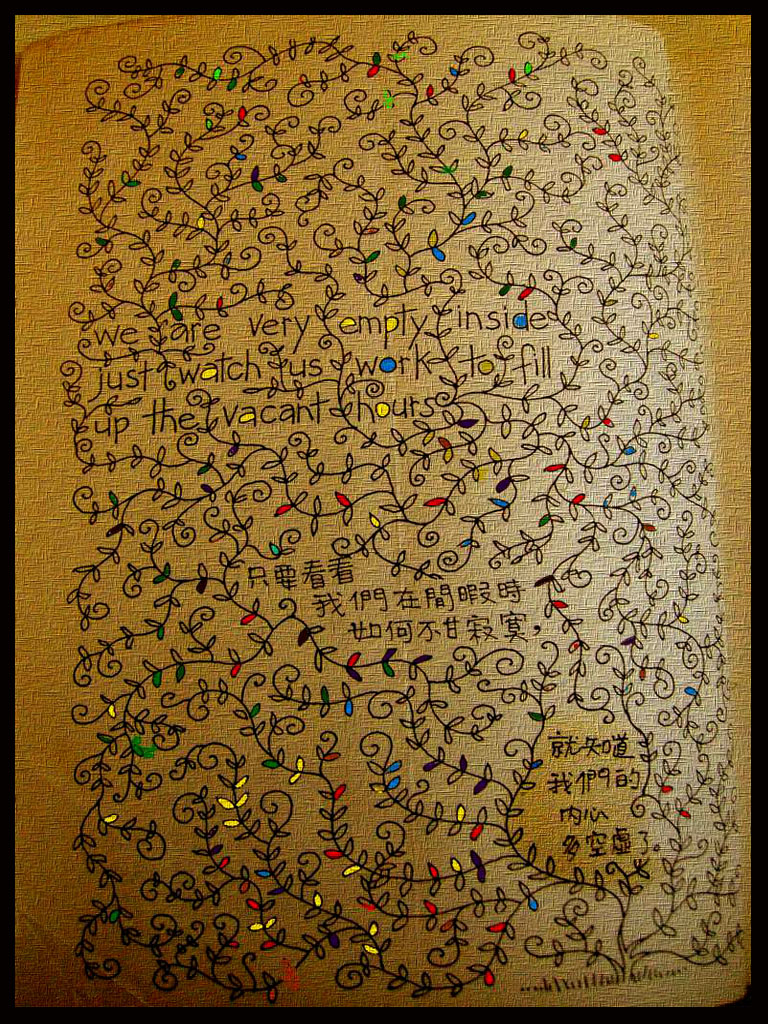 we are very empty inside
just watch us work to fill
up the vacant hours
只要看看
我們在閒暇時
如何不甘寂寞，
就知道
我們的
內心
多空虛了。